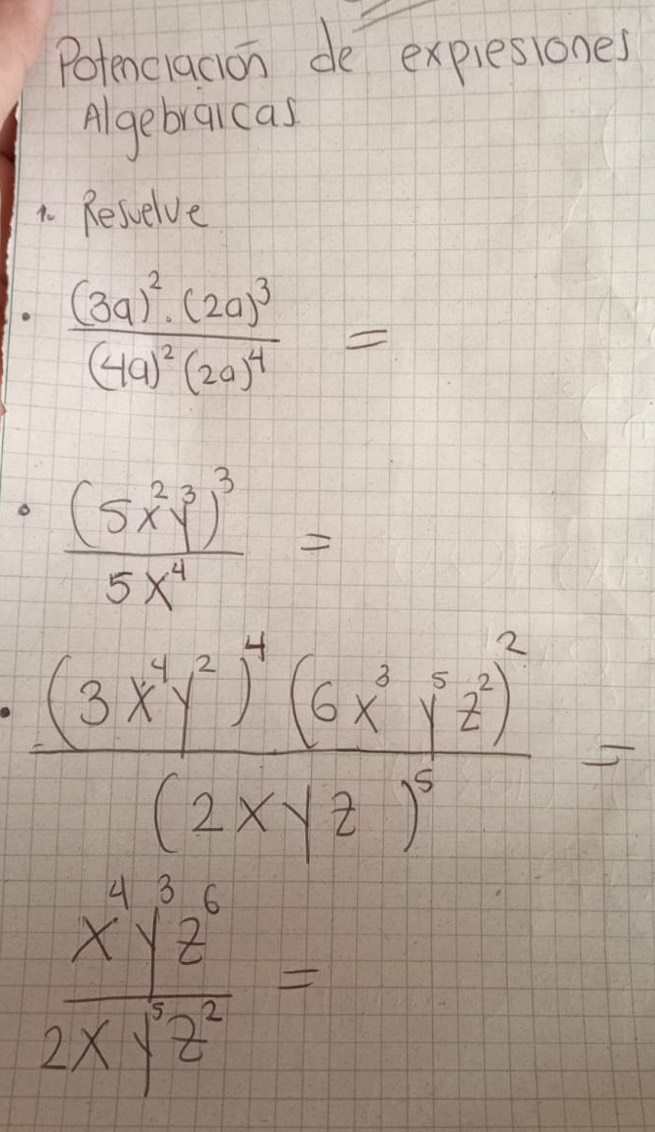 Potenciación de expresiones
Algebraicas
1. Resuelve
• (3a)². (2a)³ / (4a)² (2a)⁴ =
• (5x²y³)³ / 5x⁴ =
• (3x⁴y²)⁴ (6x³y⁵z²)² / (2xyz)⁵ =
x⁴y³z⁶ / 2xy⁵z² =